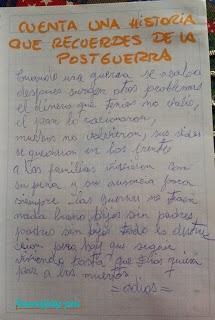 CUENTA UNA HISTORIA
QUE RECUERDES DE LA
POSTGUERRA
Cuando una guerra se acaba
despues surgen otros problemas
el dinero que tenias no valio,
el pan lo racionaron,
muchos no volvieron, sus vidas
se quedaron en los frentes
a las familias hicieron con
su pena y su ausencia para
siempre. las guerras no traen
nada bueno, hijos sin padres,
padres sin hijos todo lo destru
cion pero hay que seguir
viviendo hasta que Dios quiera
paz a los muertos.
= adios =